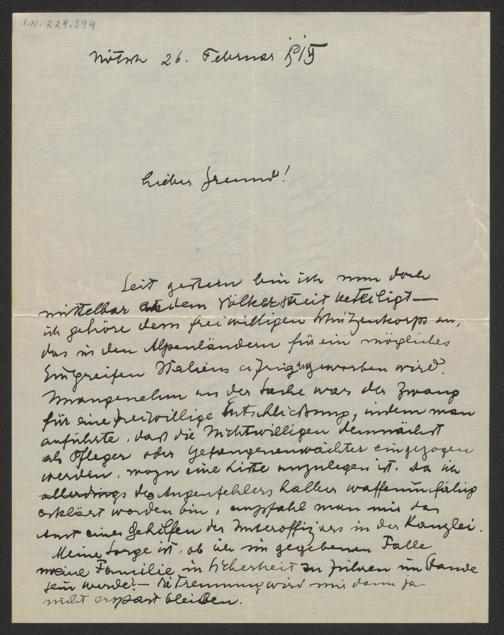 I.N. 224.394
Nötsch 26. Februar 1915
Lieber Freund!
Seit gestern bin ich nun doch
mittelbar an dem Völkerstreit beteiligt —
ich gehöre dem freiwilligen Schützenkorps an,
das in den Alpenländern für ein mögliches
Eingreifen Italiens eifrig geworben wird.
Unangenehm an der Sache war der Zwang
für eine freiwillige Entschließung, indem man
anführte, daß die Nichtwilligen demnächst
als Pfleger oder Gefangenenwächter eingezogen
werden, wozu eine Liste anzulegen ist. Da ich
allerdings des Augenfehlers halber waffenunfähig
erklärt worden bin, empfahl man mir das
Amt eines Gehilfen des Unteroffiziers in der Kanzlei.
Meine Sorge ist, ob ich im gegebenen Falle
meine Familie in Sicherheit zu führen im Stande
sein werde? — Die Trennung wird mir dann ja
nicht erspart bleiben.